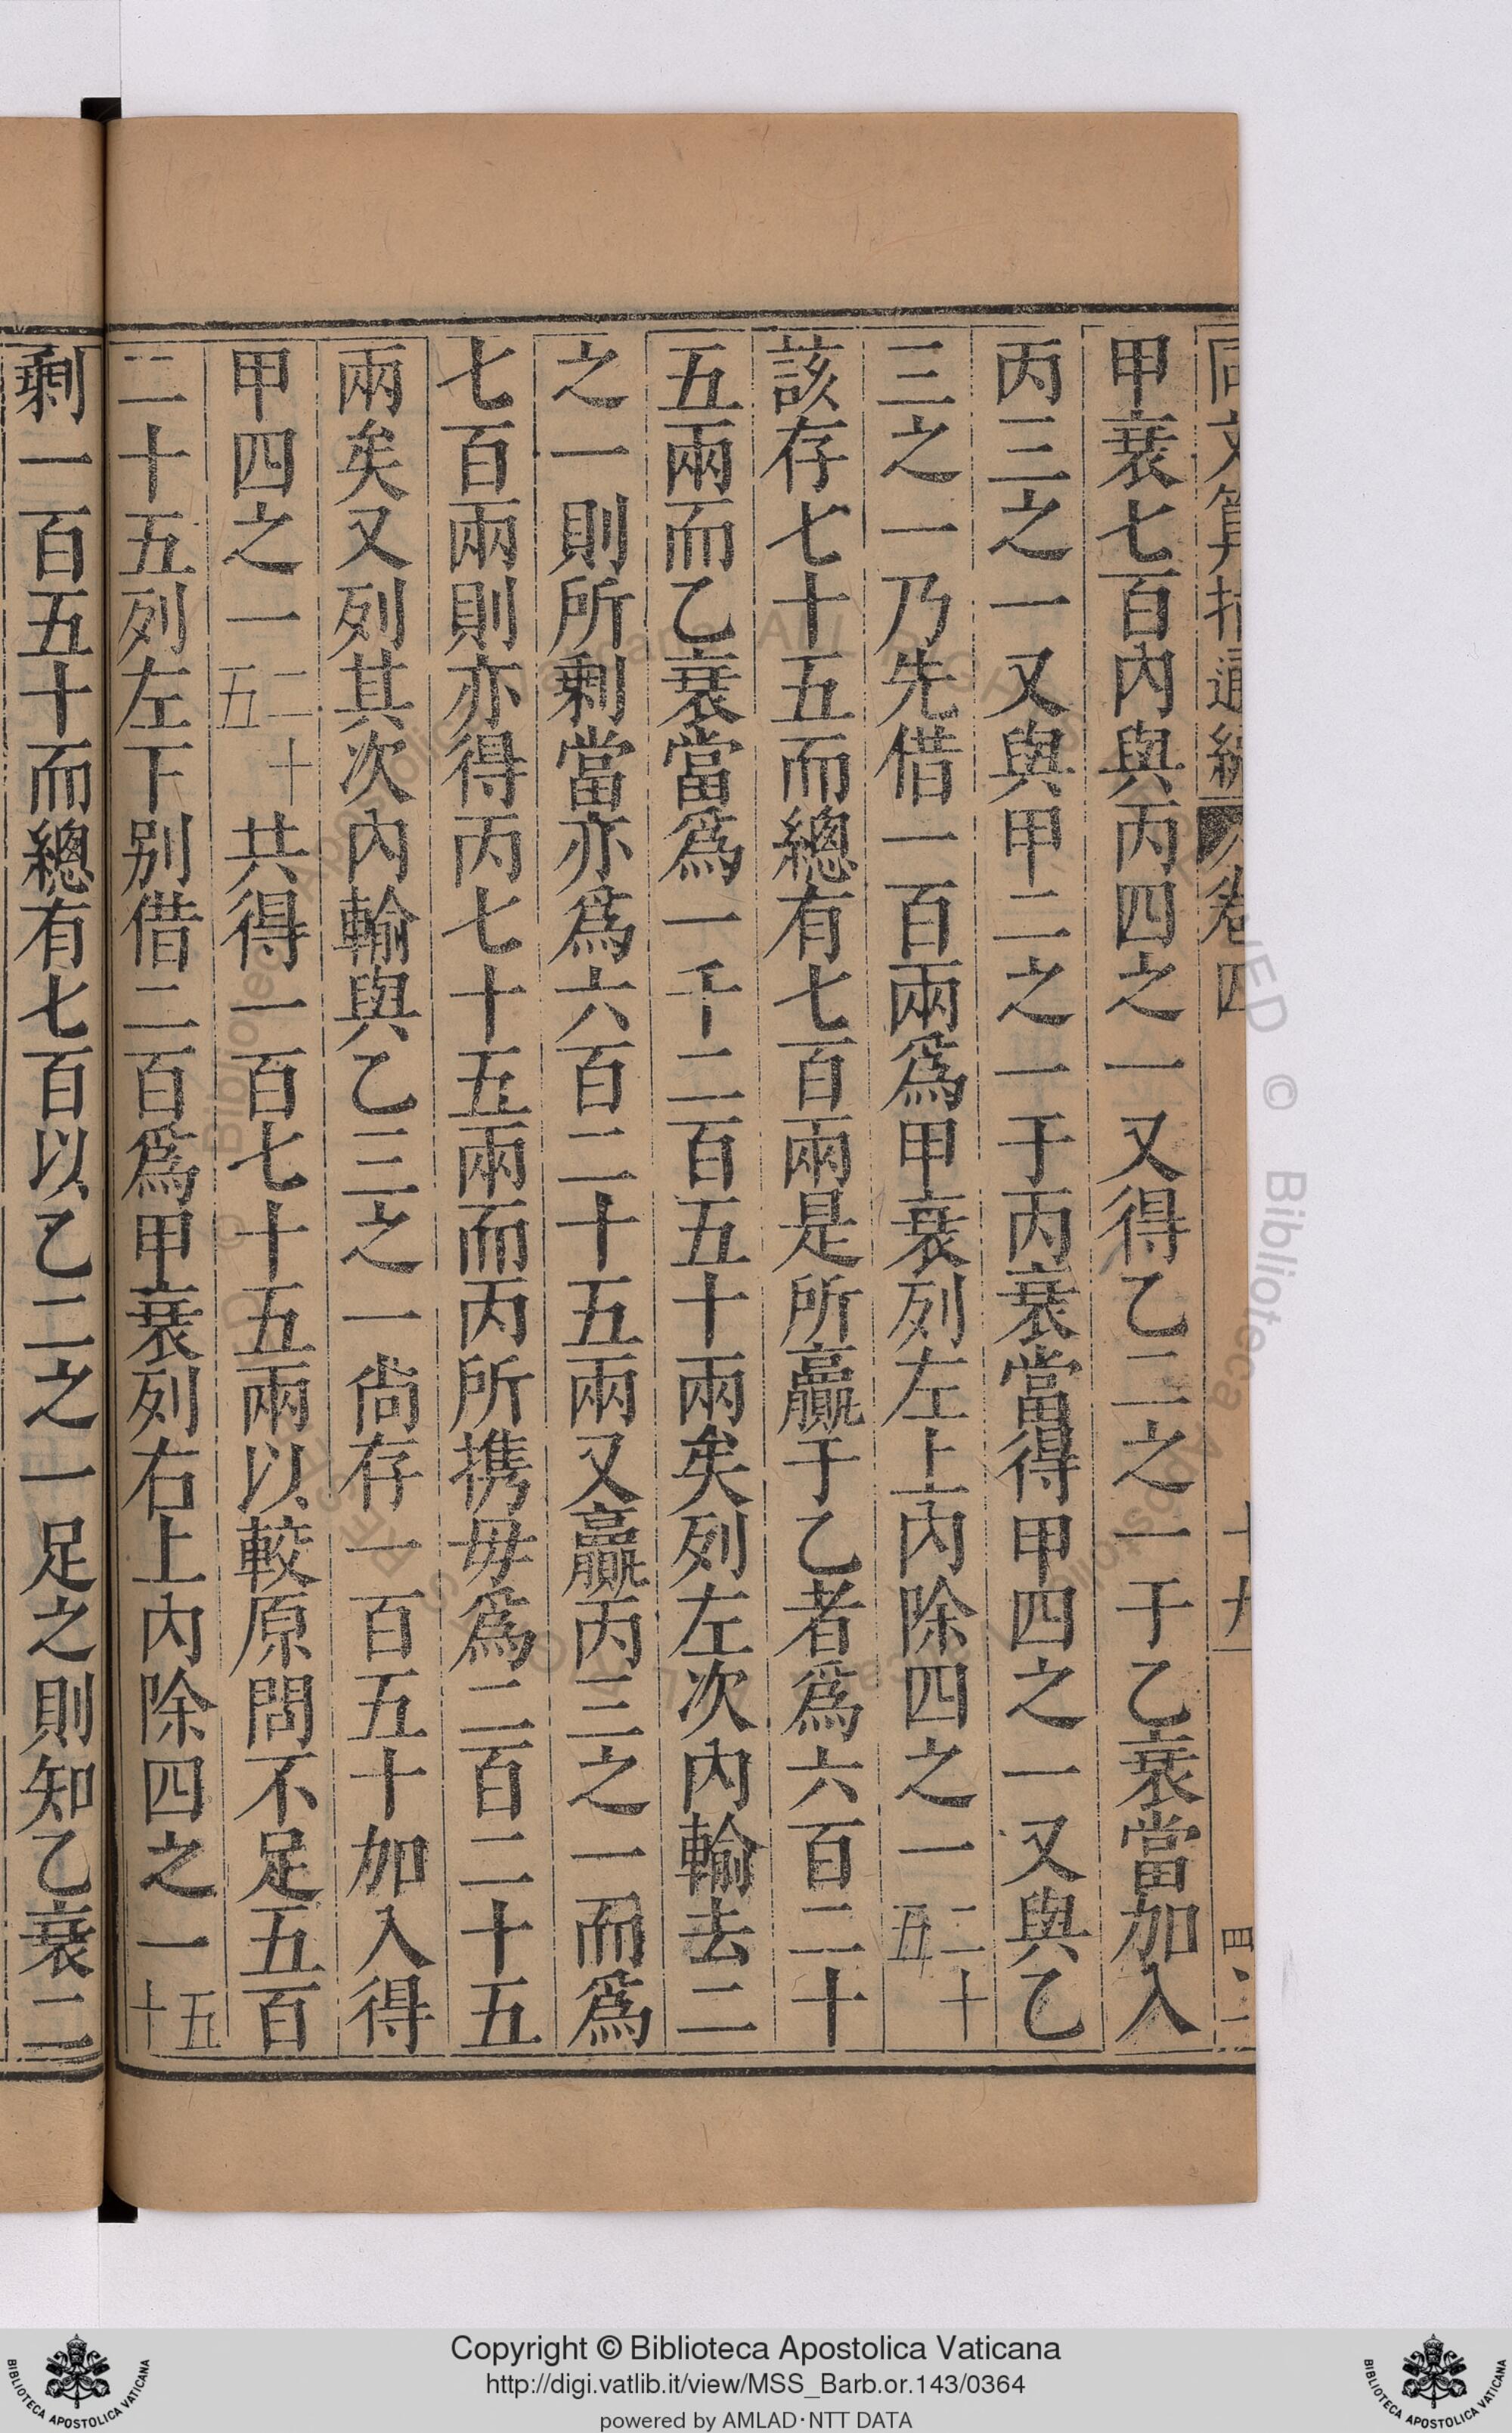 甲衰七百內與丙四之一又得乙三之一于乙衰當加入
丙三之一又與甲二之一于丙衰當得甲四之一又與乙
三之一乃先借一百兩爲甲衰列左上內除四之一二十五
該存七十五而總有七百兩是所贏于乙者爲六百二十
五兩而乙衰當爲一千二百五十兩矣列左次內輸去二
之一則所剩當亦爲六百二十五兩又贏丙三之一而爲
七百兩則亦得丙七十五兩而丙所携毋爲二百二十五
兩矣又列其次內輸與乙三之一尚存一百五十加入得
甲四之一二十五共得一百七十五兩以較原問不足五百
二十五列左下別借二百爲甲衰列右上內除四之一五十
剩一百五十而總有七百以乙二之一足之則知乙衰二
卷四
十九
Copyright © Biblioteca Apostolica Vaticana
http://digi.vatlib.it/view/MSS_Barb.or.143/0364
powered by AMLAD·NTT DATA
BIBLIOTECA APOSTOLICA VATICANA
BIBLIOTECA APOSTOLICA VATICANA